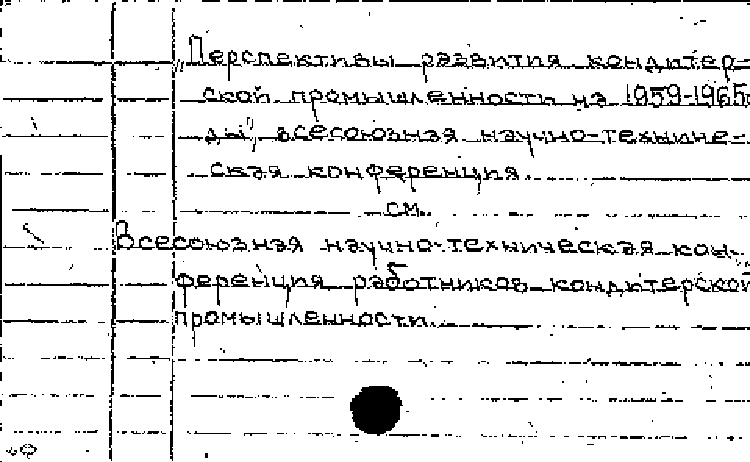 „Перспективы развития кондитер-
ской промышленности на 1959-1965
ды", всесоюзная научно-техниче-
ская конференция.
см.
Всесоюзная научно-техническая кон-
ференция работников кондитерской
промышленности.